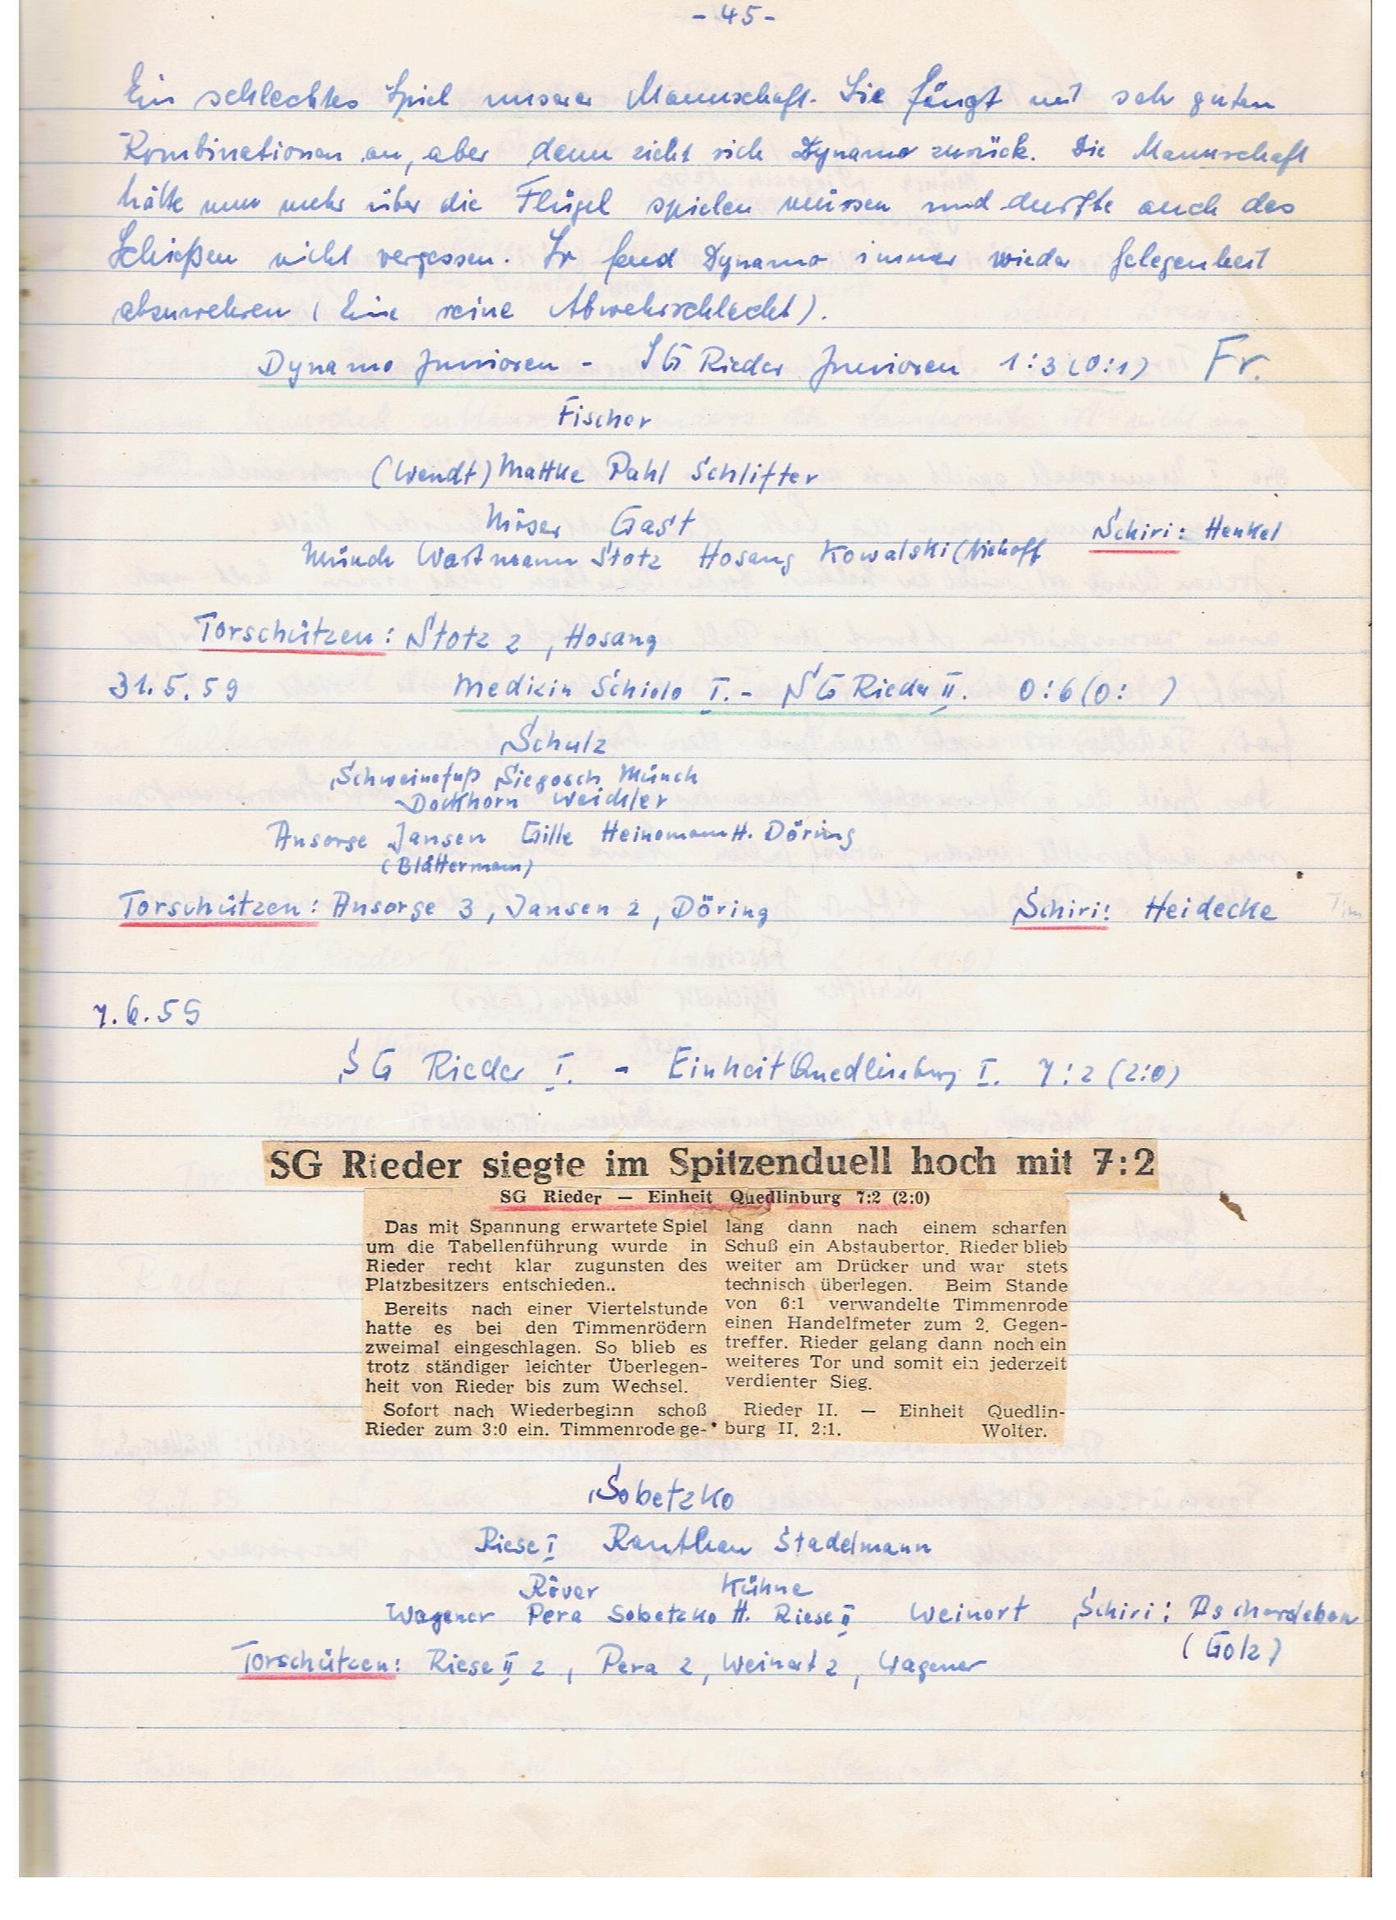 - 45 -
Ein schlechtes Spiel unserer Mannschaft. Sie fängt mit sehr guten
Kombinationen an, aber dann zieht sich Dynamo zurück. Die Mannschaft
hätte nun mehr über die Flügel spielen müssen und durfte auch das
Schießen nicht vergessen. So fand Dynamo immer wieder Gelegenheit
abzuwehren (Eine reine Abwehrschlacht).
Dynamo Junioren - SG Rieder Junioren 1:3 (0:1) Fr.
Fischer
(Wendt) Mattke Pahl Schlifter
Möser Gast
Schiri: Henkel
Münch Wastmann Stotz Hosang Kowalski (Niehoff
Torschützen: Stotz 2, Hosang
31.5.59 Medizin Schielo I. - SG Rieder II. 0:6 (0: )
Schulz
Schweinefuß Siegosch Münch
Dockhorn Weichler
Ansorge Jansen Gille Heinemann H. Döring
(Blättermann)
Torschützen: Ansorge 3, Jansen 2, Döring Schiri: Heidecke
7.6.59
SG Rieder I. - Einheit Quedlinburg I. 7:2 (2:0)
SG Rieder siegte im Spitzenduell hoch mit 7:2
SG Rieder — Einheit Quedlinburg 7:2 (2:0)
Das mit Spannung erwartete Spiel
um die Tabellenführung wurde in
Rieder recht klar zugunsten des
Platzbesitzers entschieden..
Bereits nach einer Viertelstunde
hatte es bei den Timmenrödern
zweimal eingeschlagen. So blieb es
trotz ständiger leichter Überlegen-
heit von Rieder bis zum Wechsel.
Sofort nach Wiederbeginn schoß
Rieder zum 3:0 ein. Timmenrode ge-
lang dann nach einem scharfen
Schuß ein Abstaubertor. Rieder blieb
weiter am Drücker und war stets
technisch überlegen. Beim Stande
von 6:1 verwandelte Timmenrode
einen Handelfmeter zum 2. Gegen-
treffer. Rieder gelang dann noch ein
weiteres Tor und somit ein jederzeit
verdienter Sieg.
Rieder II. — Einheit Quedlin-
burg II. 2:1. Wolter.
Sobetzko
Riese I Stadelmann
Röver Kühne
Wagener Pera Sobetzko H. Riese II Weinert Schiri: Aschersleben
(Golz)
Torschützen: Riese II 2, Pera 2, Weinert 2, Wagener